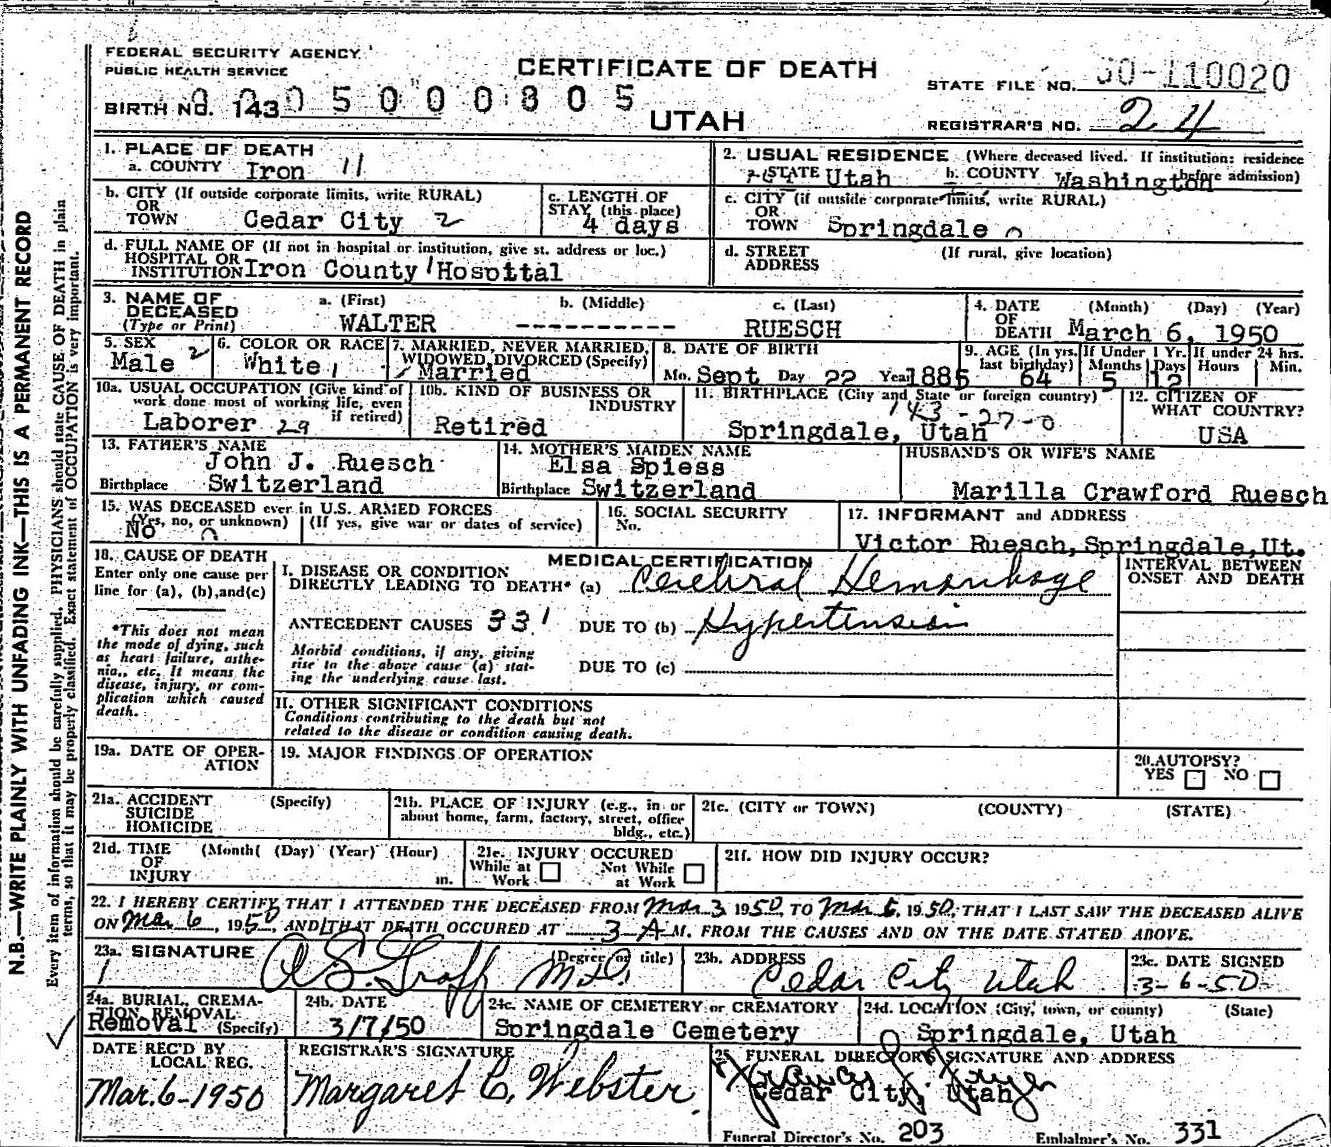 FEDERAL SECURITY AGENCY
PUBLIC HEALTH SERVICE
CERTIFICATE OF DEATH
STATE FILE NO. 50-110020
BIRTH NO. 143 0 0 0 5 0 0 0 0 8 0 5
UTAH
REGISTRAR'S NO. 24
1. PLACE OF DEATH
a. COUNTY Iron 11
2. USUAL RESIDENCE (Where deceased lived. If institution: residence before admission)
STATE Utah b. COUNTY Washington
b. CITY (If outside corporate limits, write RURAL)
OR
TOWN Cedar City 2
c. LENGTH OF
STAY (this place)
4 days
c. CITY (if outside corporate limits, write RURAL)
OR
TOWN Springdale 0
d. FULL NAME OF (If not in hospital or institution, give st. address or loc.)
HOSPITAL OR
INSTITUTION Iron County Hospital
d. STREET (If rural, give location)
ADDRESS
3. NAME OF
DECEASED
(Type or Print)
a. (First) b. (Middle) c. (Last)
WALTER ---------- RUESCH
4. DATE (Month) (Day) (Year)
OF
DEATH March 6, 1950
5. SEX
Male 2
6. COLOR OR RACE
White 1
7. MARRIED, NEVER MARRIED,
WIDOWED, DIVORCED (Specify)
Married
8. DATE OF BIRTH
Mo. Sept Day 22 Year 1885
9. AGE (In yrs. last birthday) 64
If Under 1 Yr. Months 5 Days 12
If under 24 hrs. Hours Min.
10a. USUAL OCCUPATION (Give kind of
work done most of working life, even
if retired)
Laborer 29
10b. KIND OF BUSINESS OR
INDUSTRY
Retired
11. BIRTHPLACE (City and State or foreign country)
143-27-0
Springdale, Utah
12. CITIZEN OF
WHAT COUNTRY?
USA
13. FATHER'S NAME
John J. Ruesch
Birthplace Switzerland
14. MOTHER'S MAIDEN NAME
Elsa Spiess
Birthplace Switzerland
HUSBAND'S OR WIFE'S NAME
Marilla Crawford Ruesch
15. WAS DECEASED ever in U.S. ARMED FORCES
(Yes, no, or unknown) (If yes, give war or dates of service)
No 0
16. SOCIAL SECURITY
No.
17. INFORMANT and ADDRESS
Victor Ruesch, Springdale, Ut.
18. CAUSE OF DEATH
Enter only one cause per
line for (a), (b), and (c)
*This does not mean
the mode of dying, such
as heart failure, asthe-
nia, etc. It means the
disease, injury, or com-
plication which caused
death.
MEDICAL CERTIFICATION
I. DISEASE OR CONDITION
DIRECTLY LEADING TO DEATH* (a) Cerebral Hemorrhage
ANTECEDENT CAUSES 331 DUE TO (b) Hypertension
Morbid conditions, if any, giving
rise to the above cause (a) stat-
ing the underlying cause last.
DUE TO (c)
INTERVAL BETWEEN
ONSET AND DEATH
II. OTHER SIGNIFICANT CONDITIONS
Conditions contributing to the death but not
related to the disease or condition causing death.
19a. DATE OF OPER-
ATION
19. MAJOR FINDINGS OF OPERATION
20. AUTOPSY?
YES NO
21a. ACCIDENT (Specify)
SUICIDE
HOMICIDE
21b. PLACE OF INJURY (e.g., in or
about home, farm, factory, street, office
bldg., etc.)
21c. (CITY or TOWN) (COUNTY) (STATE)
21d. TIME (Month( (Day) (Year) (Hour)
OF
INJURY m.
21e. INJURY OCCURED
While at Work Not While at Work
21f. HOW DID INJURY OCCUR?
22. I HEREBY CERTIFY THAT I ATTENDED THE DECEASED FROM Mar 3 1950, TO Mar 6, 1950, THAT I LAST SAW THE DECEASED ALIVE
ON Mar 6, 1950, AND THAT DEATH OCCURED AT 3 A M. FROM THE CAUSES AND ON THE DATE STATED ABOVE.
23a. SIGNATURE (Degree or title)
M.D.
23b. ADDRESS
Cedar City Utah
23c. DATE SIGNED
3-6-50
24a. BURIAL, CREMA-
TION REMOVAL
Removal (Specify)
24b. DATE
3/7/50
24c. NAME OF CEMETERY or CREMATORY
Springdale Cemetery
24d. LOCATION (City, town, or county) (State)
Springdale, Utah
DATE REC'D BY
LOCAL REG.
Mar. 6-1950
REGISTRAR'S SIGNATURE
Margaret C. Webster
25. FUNERAL DIRECTOR'S SIGNATURE AND ADDRESS
Cedar City, Utah
Funeral Director's No. 203 Embalmer's No. 331
N.B.—WRITE PLAINLY WITH UNFADING INK—THIS IS A PERMANENT RECORD
Every item of information should be carefully supplied. PHYSICIANS should state CAUSE OF DEATH in plain
terms, so that it may be properly classified. Exact statement of OCCUPATION is very important.